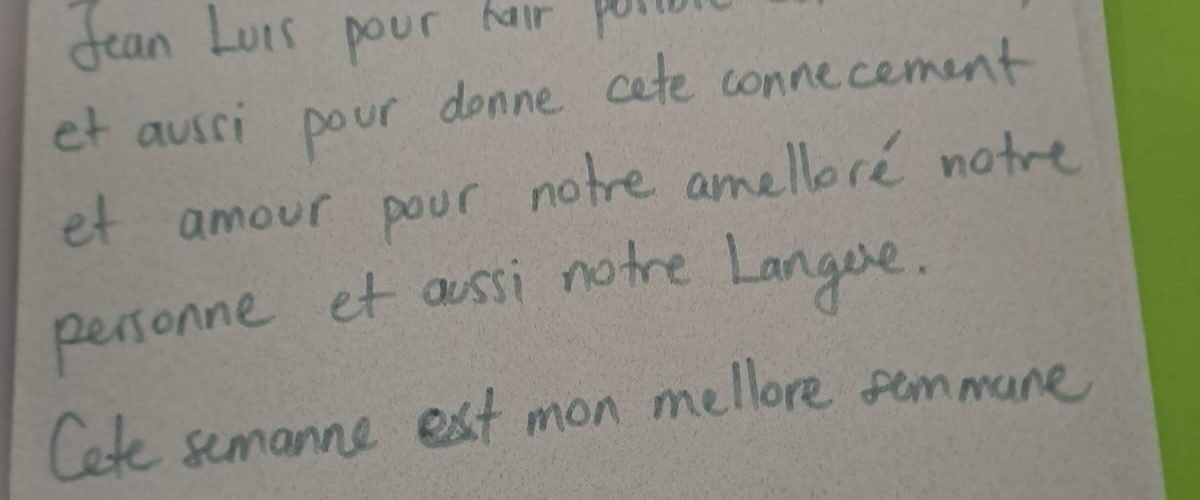 Jean Luis pour hair posible
et aussi pour donne cete connecement
et amour pour notre amelloré notre
personne et aussi notre Langue.
Cete semanne est mon mellore semmane